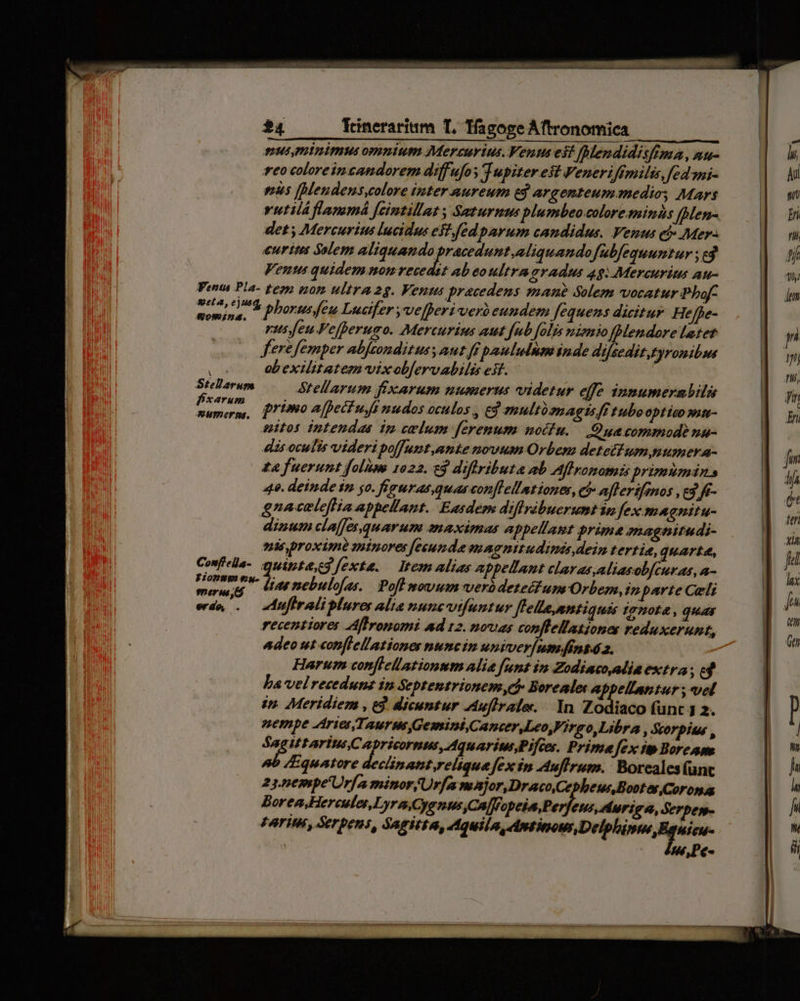 24 Itinerarium I. Isagoge Astronomica
nus, minimus omnium Mercurius. Venus est splendidissima, au-
reo colore in candorem diffuso; Jupiter est Veneri similis, sed mi-
nùs splendens, colore inter aureum & argenteum medio; Mars
rutilâ flammâ scintillat; Saturnus plumbeo colore minùs splen-
det; Mercurius lucidus est, sed parum candidus. Venus & Mer-
curius Solem aliquando præcedunt, aliquando subsequuntur; &
Venus quidem non recedit ab eo ultra gradus 48: Mercurius au-
Venus Pla- tem non ultra 28. Venus præcedens manè Solem vocatur Phos-
neta, ejusq. phorus, seu Lucifer; vesperi verò eundem sequens dicitur Hespe-
nomina. rus, seu Vesperugo. Mercurius aut sub solis nimio splendore latet
ferè semper absconditus; aut si paululùm inde discedit, tyronibus
ob exilitatem vix observabilis est.
Stellarum Stellarum fixarum numerus videtur esse innumerabilis
fixarum
numerus. primo aspectu, si nudos oculos, & multò magis si tubo optico mu-
nitos intendas in cœlum serenum noctu. Quæ commodè nu-
dis oculis videri possunt, ante novum Orbem detectum, numera-
ta fuerunt solùm 1022. & distributa ab Astronomis primùm in
40. deinde in 50. figuras, quas constellationes, & asterismos, & si-
gna cælestia appellant. Easdem distribuerunt in sex magnitu-
dinum classes, quarum maximas appellant primæ magnitudi-
nis, proximè minores secundæ magnitudinis, dein tertiæ, quartæ,
Constella- quintæ, & sextæ. Item alias appellant claras, alias obscuras, a-
tionum nu-
merus, & lias nebulosas. Post novum verò detectum Orbem, in parte Cæli
ordo. Australi plures aliæ nunc visuntur stellæ, antiquis ignotæ, quas
recentiores Astronomi ad 12. novas constellationes reduxerunt,
adeo ut constellationes nunc in universum sint 62.
Harum constellationum aliæ sunt in Zodiaco, aliæ extra; &
hæ vel recedunt in Septentrionem, & Boreales appellantur; vel
in Meridiem, & dicuntur Australes. In Zodiaco sunt 12.
nempe Aries, Taurus, Gemini, Cancer, Leo, Virgo, Libra, Scorpius,
Sagittarius, Capricornus, Aquarius, Pisces. Primæ sex in Boream
ab Æquatore declinant, reliquæ sex in Austrum. Boreales sunt
23. nempe Ursa minor, Ursa major, Draco, Cepheus, Bootes, Corona
Borea, Hercules, Lyra, Cygnus, Cassiopeia, Perseus, Auriga, Serpen-
tarius, Serpens, Sagitta, Aquila, Antinous, Delphinus, Equicu-
lus, Pe-